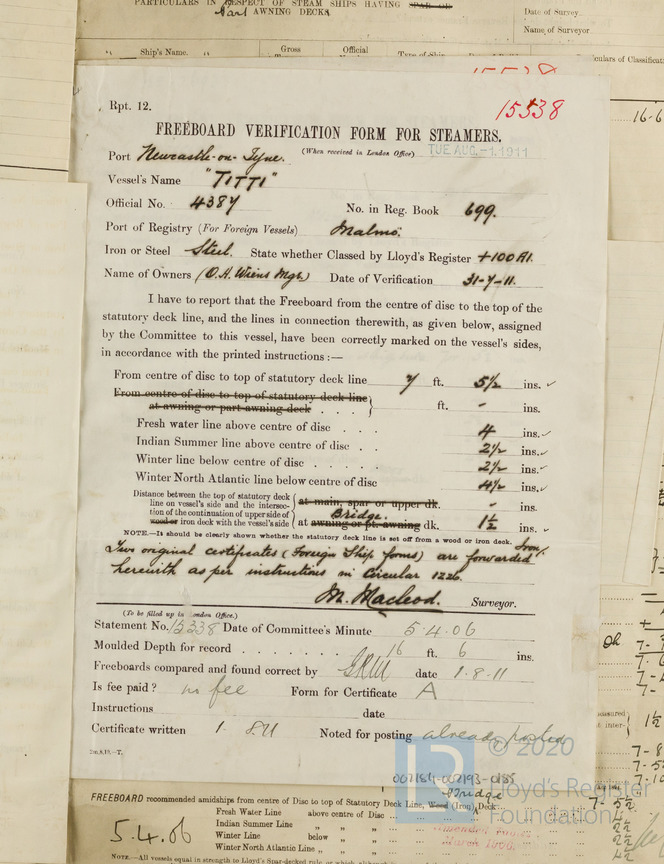 PARTICULARS IN RESPECT OF STEAM SHIPS HAVING SPAR OR
Part AWNING DECKS
Date of Survey
Name of Surveyor
Ship's Name.
Gross
Official
Type of Ship.
culars of Classificati
16-6
Rpt. 12.
15338
FREEBOARD VERIFICATION FORM FOR STEAMERS.
Port Newcastle-on-Tyne. (When received in London Office) TUE AUG -1 1911
Vessel's Name "TITTI"
Official No. 4387 No. in Reg. Book 699.
Port of Registry (For Foreign Vessels) Malmö.
Iron or Steel Steel. State whether Classed by Lloyd's Register +100A1.
Name of Owners (O.H. Wiens Mgr) Date of Verification 31-7-11.
I have to report that the Freeboard from the centre of disc to the top of the
statutory deck line, and the lines in connection therewith, as given below, assigned
by the Committee to this vessel, have been correctly marked on the vessel's sides,
in accordance with the printed instructions :—
From centre of disc to top of statutory deck line 7 ft. 5½ ins.
From centre of disc to top of statutory deck line
at awning or part awning deck . . . ft. - ins.
Fresh water line above centre of disc . . . 4 ins.
Indian Summer line above centre of disc . . 2½ ins.
Winter line below centre of disc . . . . . 2½ ins.
Winter North Atlantic line below centre of disc 4½ ins.
Distance between the top of statutory deck
line on vessel's side and the intersec-
tion of the continuation of upper side of
wood or iron deck with the vessel's side
at main, spar or upper dk. - ins.
Bridge.
at awning or pt. awning dk. 1½ ins.
NOTE.—It should be clearly shown whether the statutory deck line is set off from a wood or iron deck. Iron.
Two original certificates (Foreign Ship forms) are forwarded
herewith as per instructions in Circular 1226.
M. Macleod. Surveyor.
(To be filled up in London Office.)
Statement No. 15338 Date of Committee's Minute 5.4.06
Moulded Depth for record . . . . . . . 16 ft. 6 ins.
Freeboards compared and found correct by date 1.8.11
Is fee paid? no fee Form for Certificate A
Instructions date
Certificate written 1. 8.11 Noted for posting already posted
2m.8.10.—T.
© 2020
Lloyd's Register
Foundation
007184-007193-0185
Bridge
FREEBOARD recommended amidships from centre of Disc to top of Statutory Deck Line, Wood (Iron) Deck
Fresh Water Line above centre of Disc
Indian Summer Line " " "
Winter Line below " "
Winter North Atlantic Line " " "
5.4.06
March 1906
NOTE.—All vessels equal in strength to Lloyd's Spar-decked rule